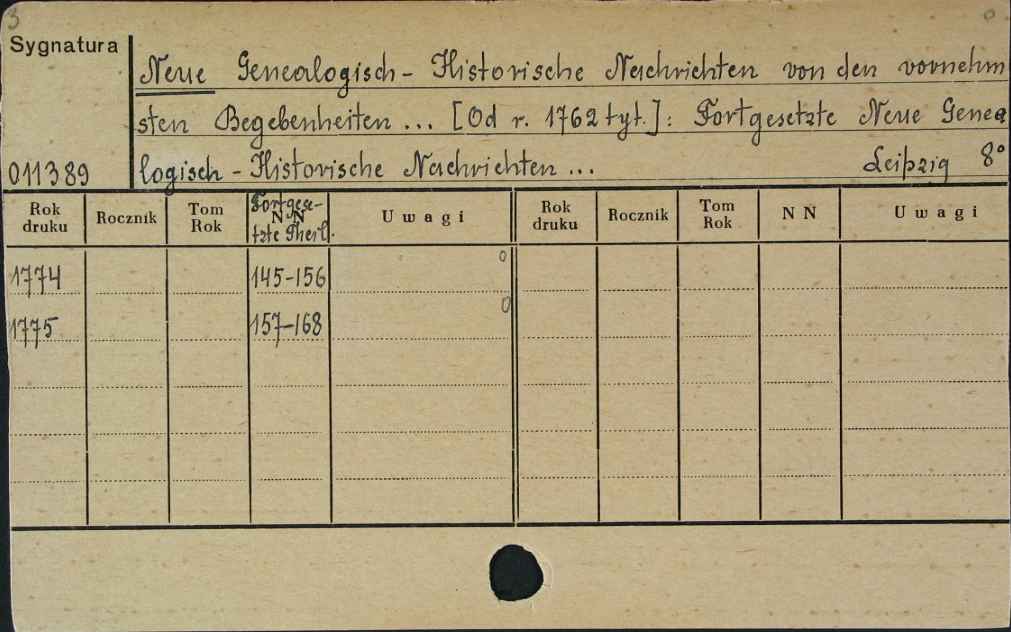 3
Sygnatura
011389
Neue Genealogisch-Historische Nachrichten von den vornehm
sten Begebenheiten ... [Od r. 1762 tyt.]: Fortgesetzte Neue Genea
logisch-Historische Nachrichten ... Leipzig 8°
Rok druku Rocznik Tom Rok NN Fortgese-tzte Theil. Uwagi Rok druku Rocznik Tom Rok NN Uwagi
1774 145-156 0
1775 157-168 0